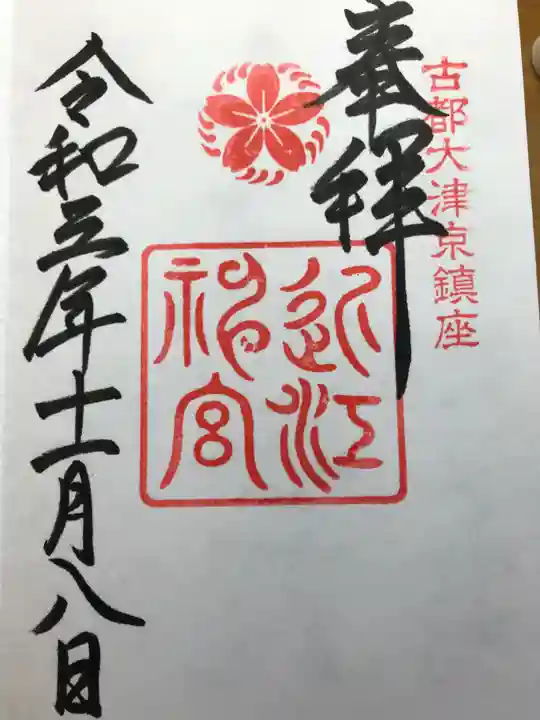 古都大津京鎮座
奉拝
近江
神宮
令和三年十一月八日